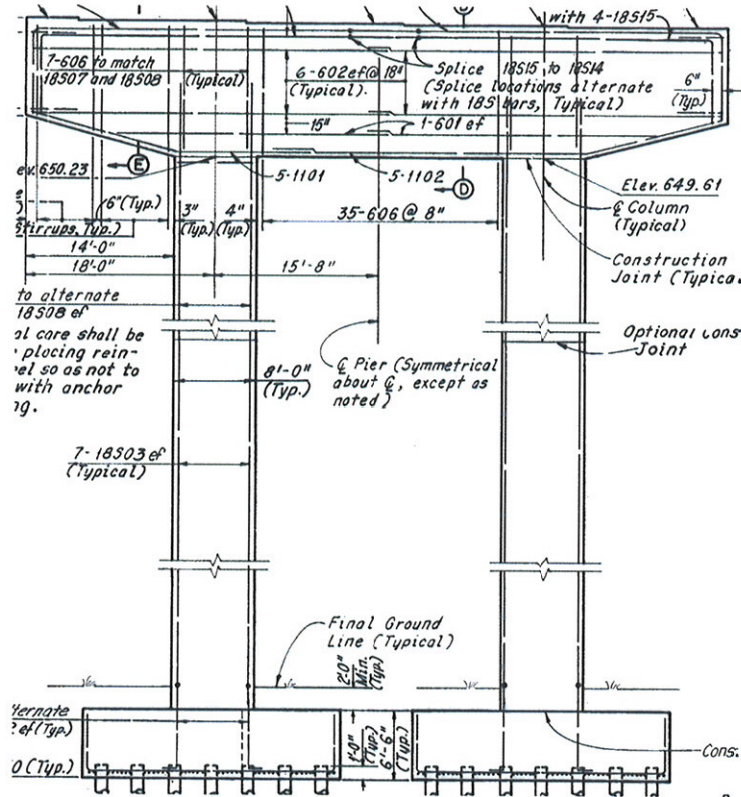 with 4-18S15
7-606 to match
18S07 and 18S08
(Typical)
6-602ef@ 18"
(Typical).
Splice 18S15 to 18S14
(Splice locations alternate
with 18S bars, Typical)
6"
(Typ.)
15"
1-601 ef
E
ev. 650.23
5-1101
5-1102
D
Elev. 649.61
₵ Column
(Typical)
6"(Typ.)
3"
(Typ.)
4"
(Typ.)
35-606 @ 8"
Stirrups, Typ.)
14'-0"
18'-0"
15'-8"
Construction
Joint (Typica
to alternate
18S08 ef
al care shall be
placing rein-
el so as not to
with anchor
ng.
Optional Cons
Joint
₵ Pier (Symmetrical
about ₵, except as
noted)
8'-0"
(Typ.)
7-18S03 ef
(Typical)
Final Ground
Line (Typical)
2'-0"
Min.
(Typ.)
ternate
2 ef (Typ.)
1'-0"
(Typ.)
6'-6"
(Typ.)
Cons.
0 (Typ.)